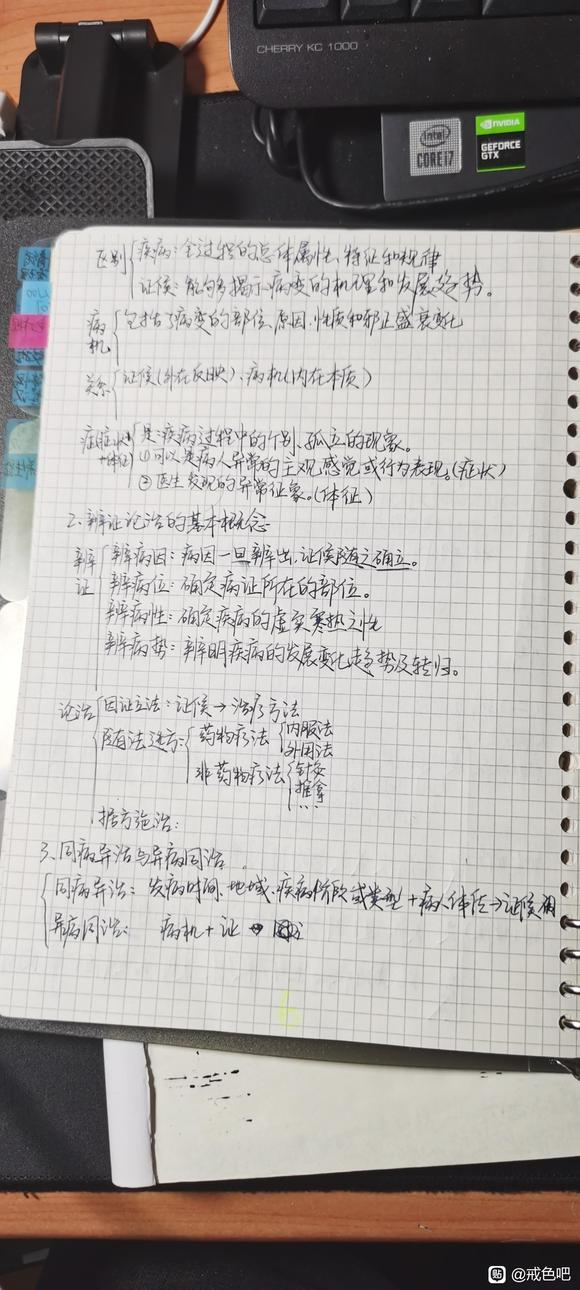 CHERRY KC 1000
intel
CORE i7
NVIDIA
GEFORCE
GTX
区别 疾病:全过程的总体属性、特征和规律
证候:能够揭示病变的机理和发展趋势。
病机 包括了病变的部位、原因、性质和邪正盛衰变化
关系 证候(外在反映)、病机(内在本质)
症(症状+体征) 是疾病过程中的个别、孤立的现象。
①可以是病人异常的主观感觉或行为表现。(症状)
②医生发现的异常征象。(体征)
2.辨证论治的基本概念
辨证 辨病因:病因一旦辨出,证候随之确立。
辨病位:确定病证所在的部位。
辨病性:确定疾病的虚实寒热之性
辨病势:辨明疾病的发展变化趋势及转归。
论治 因证立法:证候→治疗方法
随法选方: 药物疗法 内服法
外用法
非药物疗法 针灸
推拿
...
据方施治:
3.同病异治与异病同治
同病异治:发病时间、地域、疾病阶段或类型+病人体质→证候
异病同治: 病机+证
6
@戒色吧